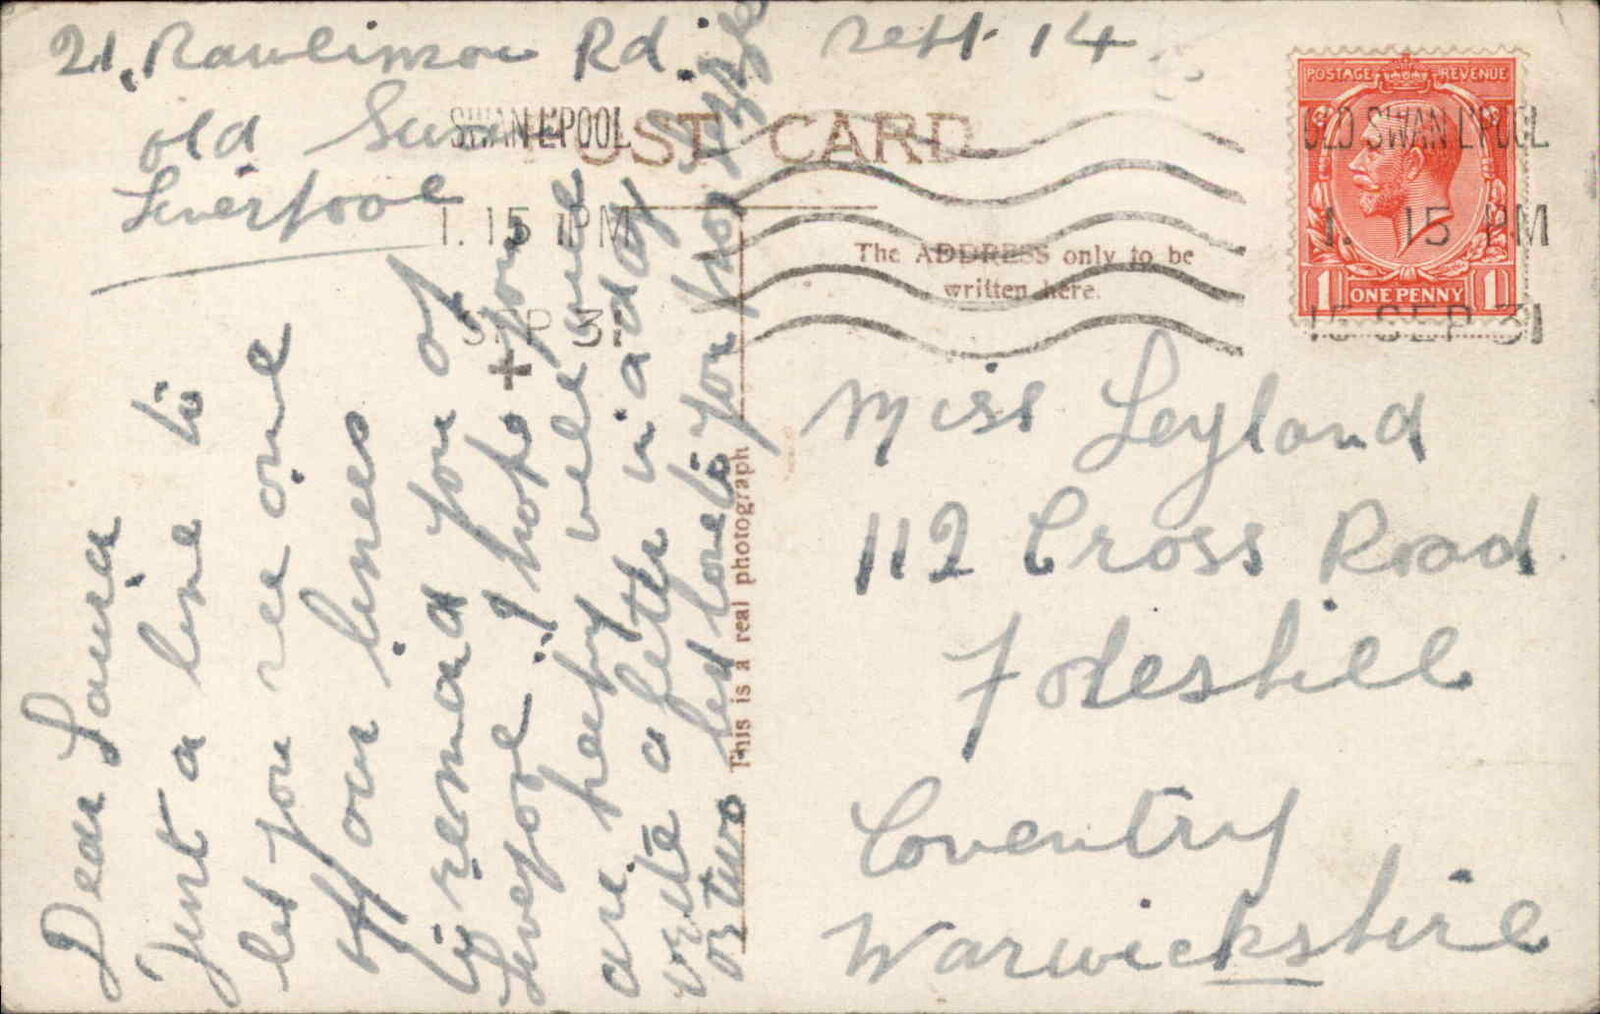 21, Rawlinson Rd. Sept. 14
old Swan
Liverpool
POST CARD
SWAN L'POOL
1. 15 PM
SEP 31
OLD SWAN L'POOL
1. 15 PM
15 SEP 31
POSTAGE REVENUE
1 ONE PENNY 1
The ADDRESS only to be
written here.
This is a real photograph
Dear Laura
Just a line to
let you see one
off our liners
to remind you of
Liverpool. I hope you
are keeping well will
write a letter in a day
or two best love to you from
Miss Leyland
112 Cross Road
Foleshill
Coventry
Warwickshire